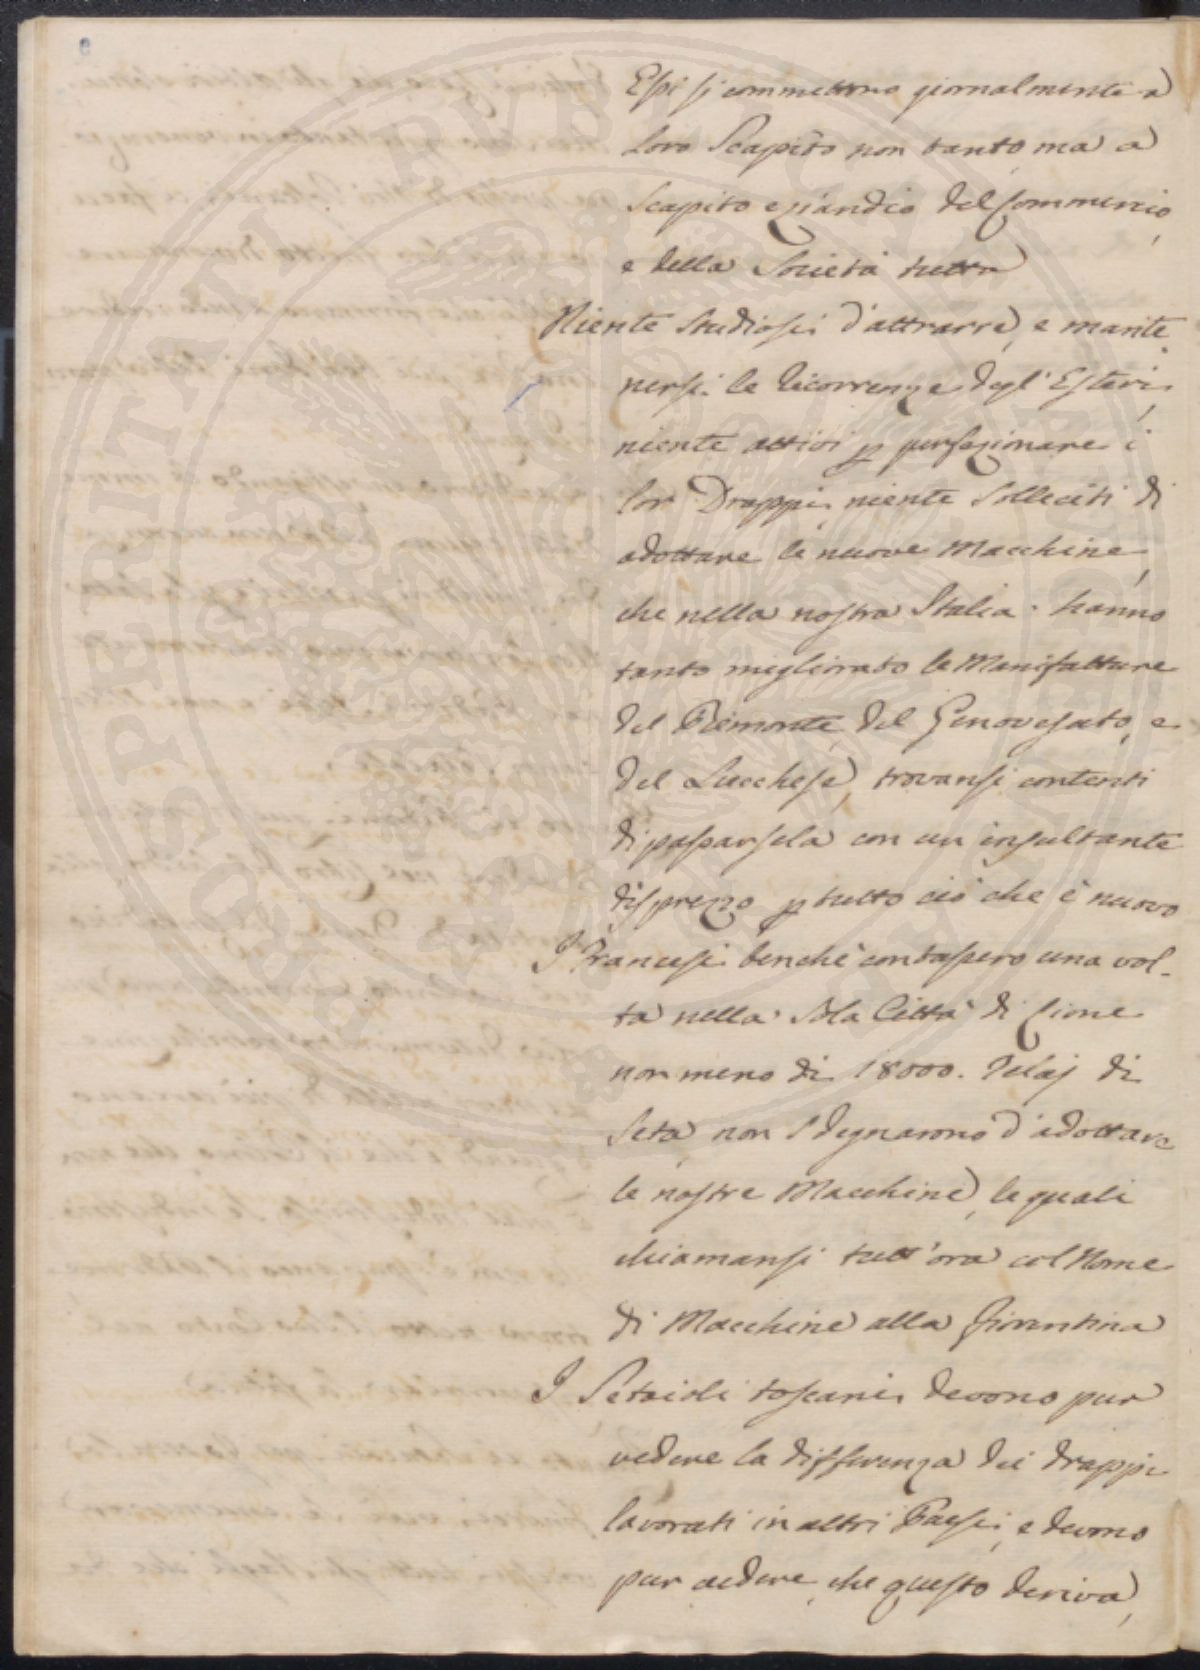 Essi si commettono giornalmente a
Loro Scapito non tanto, ma a
Scapito eziandio del Commercio,
e della Società tutta
Niente studiosi d'attrarre, e mante
nersi le ricorrenze degl'Esteri,
niente attivi p perfezionare i
lor Drappi, niente solleciti di
adottare le nuove Macchine,
che nella nostra Italia hanno
tanto migliorato le Manifatture
del Piemonte, del Genovesato, e
del Lucchese, trovansi contenti
di passarsela con un insultante
disprezzo p tutto ciò che è nuovo
I Francesi benchè contassero una vol-
ta nella sola Città di Lione
non meno di 18000. Telaj di
Seta, non sdegnarono d'adottare
le nostre Macchine, le quali
chiamansi tutt'ora col Nome
di Macchine alla Fiorentina
I Setaioli toscani devono pur
vedere la differenza dei drappi
lavorati in altri Paesi, e devono
pur vedere, che questo deriva,
PROSPERITATI PUBLICAE AUGENDAE